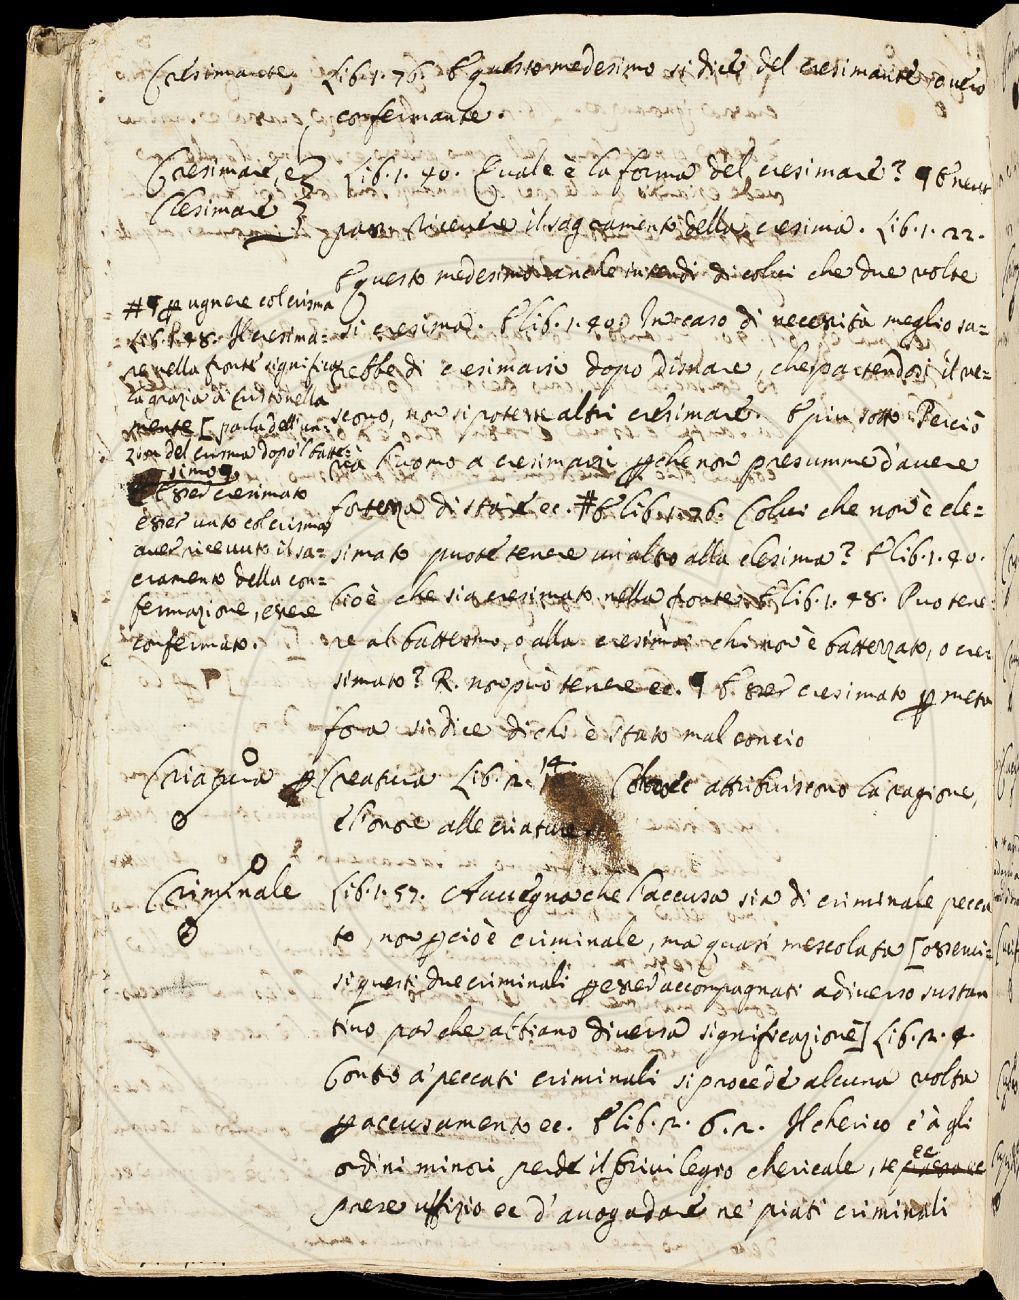 Cresimante. Lib. 1. 76. E questo medesimo si dice del cresimante, overo
confermante.
Cresimare, e
Clesimare
Lib. 1. 40. Quale è la forma del cresimare? ¶ E neut
pass. Ricevere il sagramento della cresima. Lib. 1. 22.
E questo medesimo anche intendi di colui che due volte
si cresima. E lib. 1. 40. In caso di necessità meglio sa=
rebbe di cresimarsi dopo disnare, che partendosi il ve=
scovo, non si potesse altri cresimare. E più sotto Perciò
l'uomo a cresimarsi perche non presumme d'avere
fortezza di stare ec. # E lib. 1. 76. Colui che non è cle=
simato puote tenere un altro alla clesima? E lib. 1. 40.
Cioè che sia cresimato nella fronte. E lib. 1. 48. Puo tene=
re al battesmo, o alla cresima chi non è battezzato, o cre=
simato? R. non può tenere ec. ¶ E. Esser cresimato p meta
fora si dice di chi è stato mal concio
# ¶ p ugnere col crisma
Lib. 1. 48. Il cresima=
re nella fronte significa
la grazia di Cristo nella
mente [parla dell'un=
zion del crisma dopo 'l batte=
simo].
Esser cresimato
esser unto col crisma
aver ricevuto il sa=
cramento della con=
fermazione, essere
confermato.
Criatura p Creatura Lib. 2. 14. attribuiscono la ragione,
e l'onore alle criature
Criminale Lib. 1. 57. Avvegnache l'accusa sia di criminale pecca
to, non pciò è criminale, ma quasi mescolata [osservi=
si questi due criminali p esser accompagnati a diverso sustan
tivo par che abbiano diversa significazione] Lib. 2. 4.
Contro a' peccati criminali si procede alcuna volta
p accusamento ec. E lib. 2. 6. 2. Il cherico c'à gli
ordini minori perde il privilegio chericale, se
prese uffizio ec d'avogadare ne' piati criminali